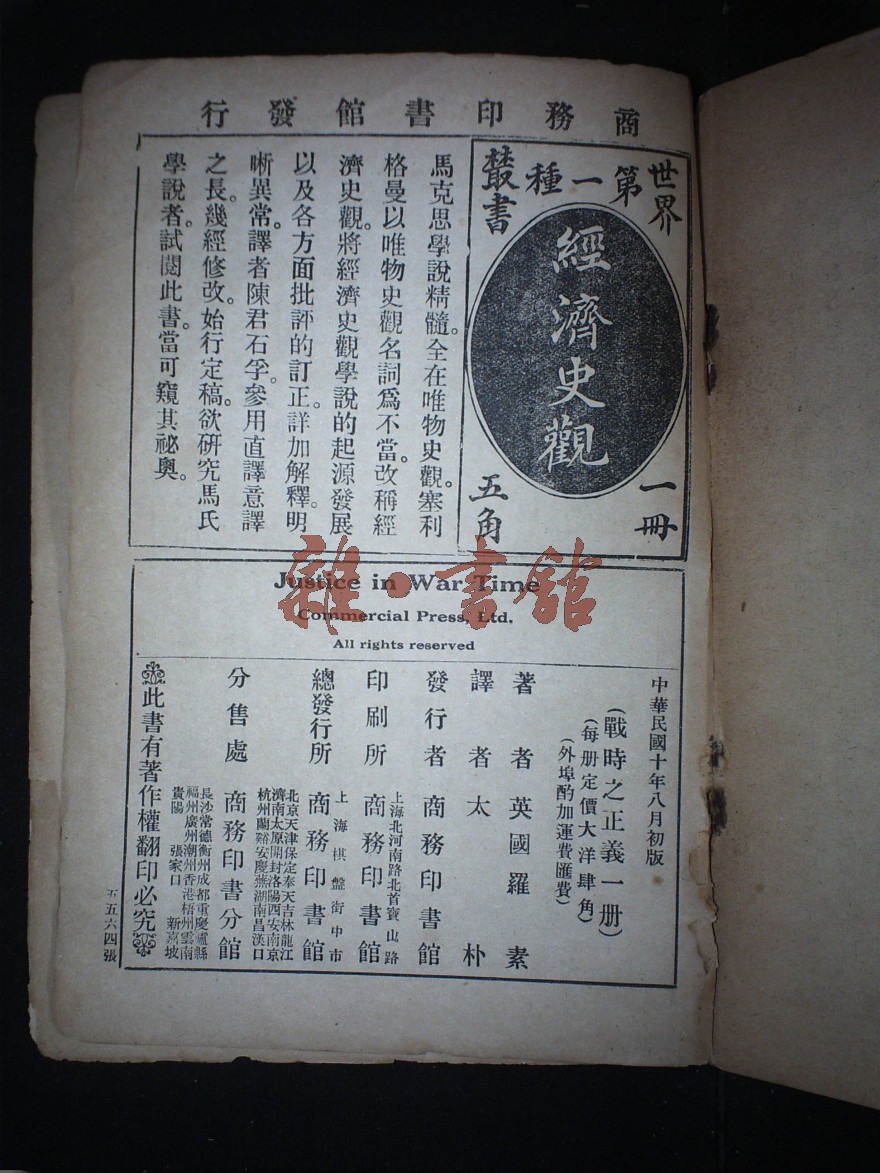 商務印書館發行
世界叢書
第一種
經濟史觀
一冊
五角
馬克思學說精髓。全在唯物史觀。塞利
格曼以唯物史觀名詞爲不當。改稱經
濟史觀。將經濟史觀學說的起源發展
以及各方面批評的訂正。詳加解釋。明
晰異常。譯者陳君石孚。參用直譯意譯
之長。幾經修改。始行定稿。欲研究馬氏
學說者。試閱此書。當可窺其祕奧。
Justice in War Time
Commercial Press, Ltd.
All rights reserved
中華民國十年八月初版
(戰時之正義一册)
(每册定價大洋肆角)
(外埠酌加運費匯費)
著者 英國羅素
譯者 太朴
發行者 商務印書館
上海北河南路北首寶山路
印刷所 商務印書館
上海棋盤街中市
總發行所 商務印書館
北京天津保定奉天吉林龍江
濟南太原開封洛陽西安南京
杭州蘭谿安慶蕪湖南昌漢口
分售處 商務印書分館
長沙常德衡州成都重慶瀘縣
福州廣州潮州香港梧州雲南
貴陽 張家口 新嘉坡
此書有著作權翻印必究
五五六四張
雜·書館